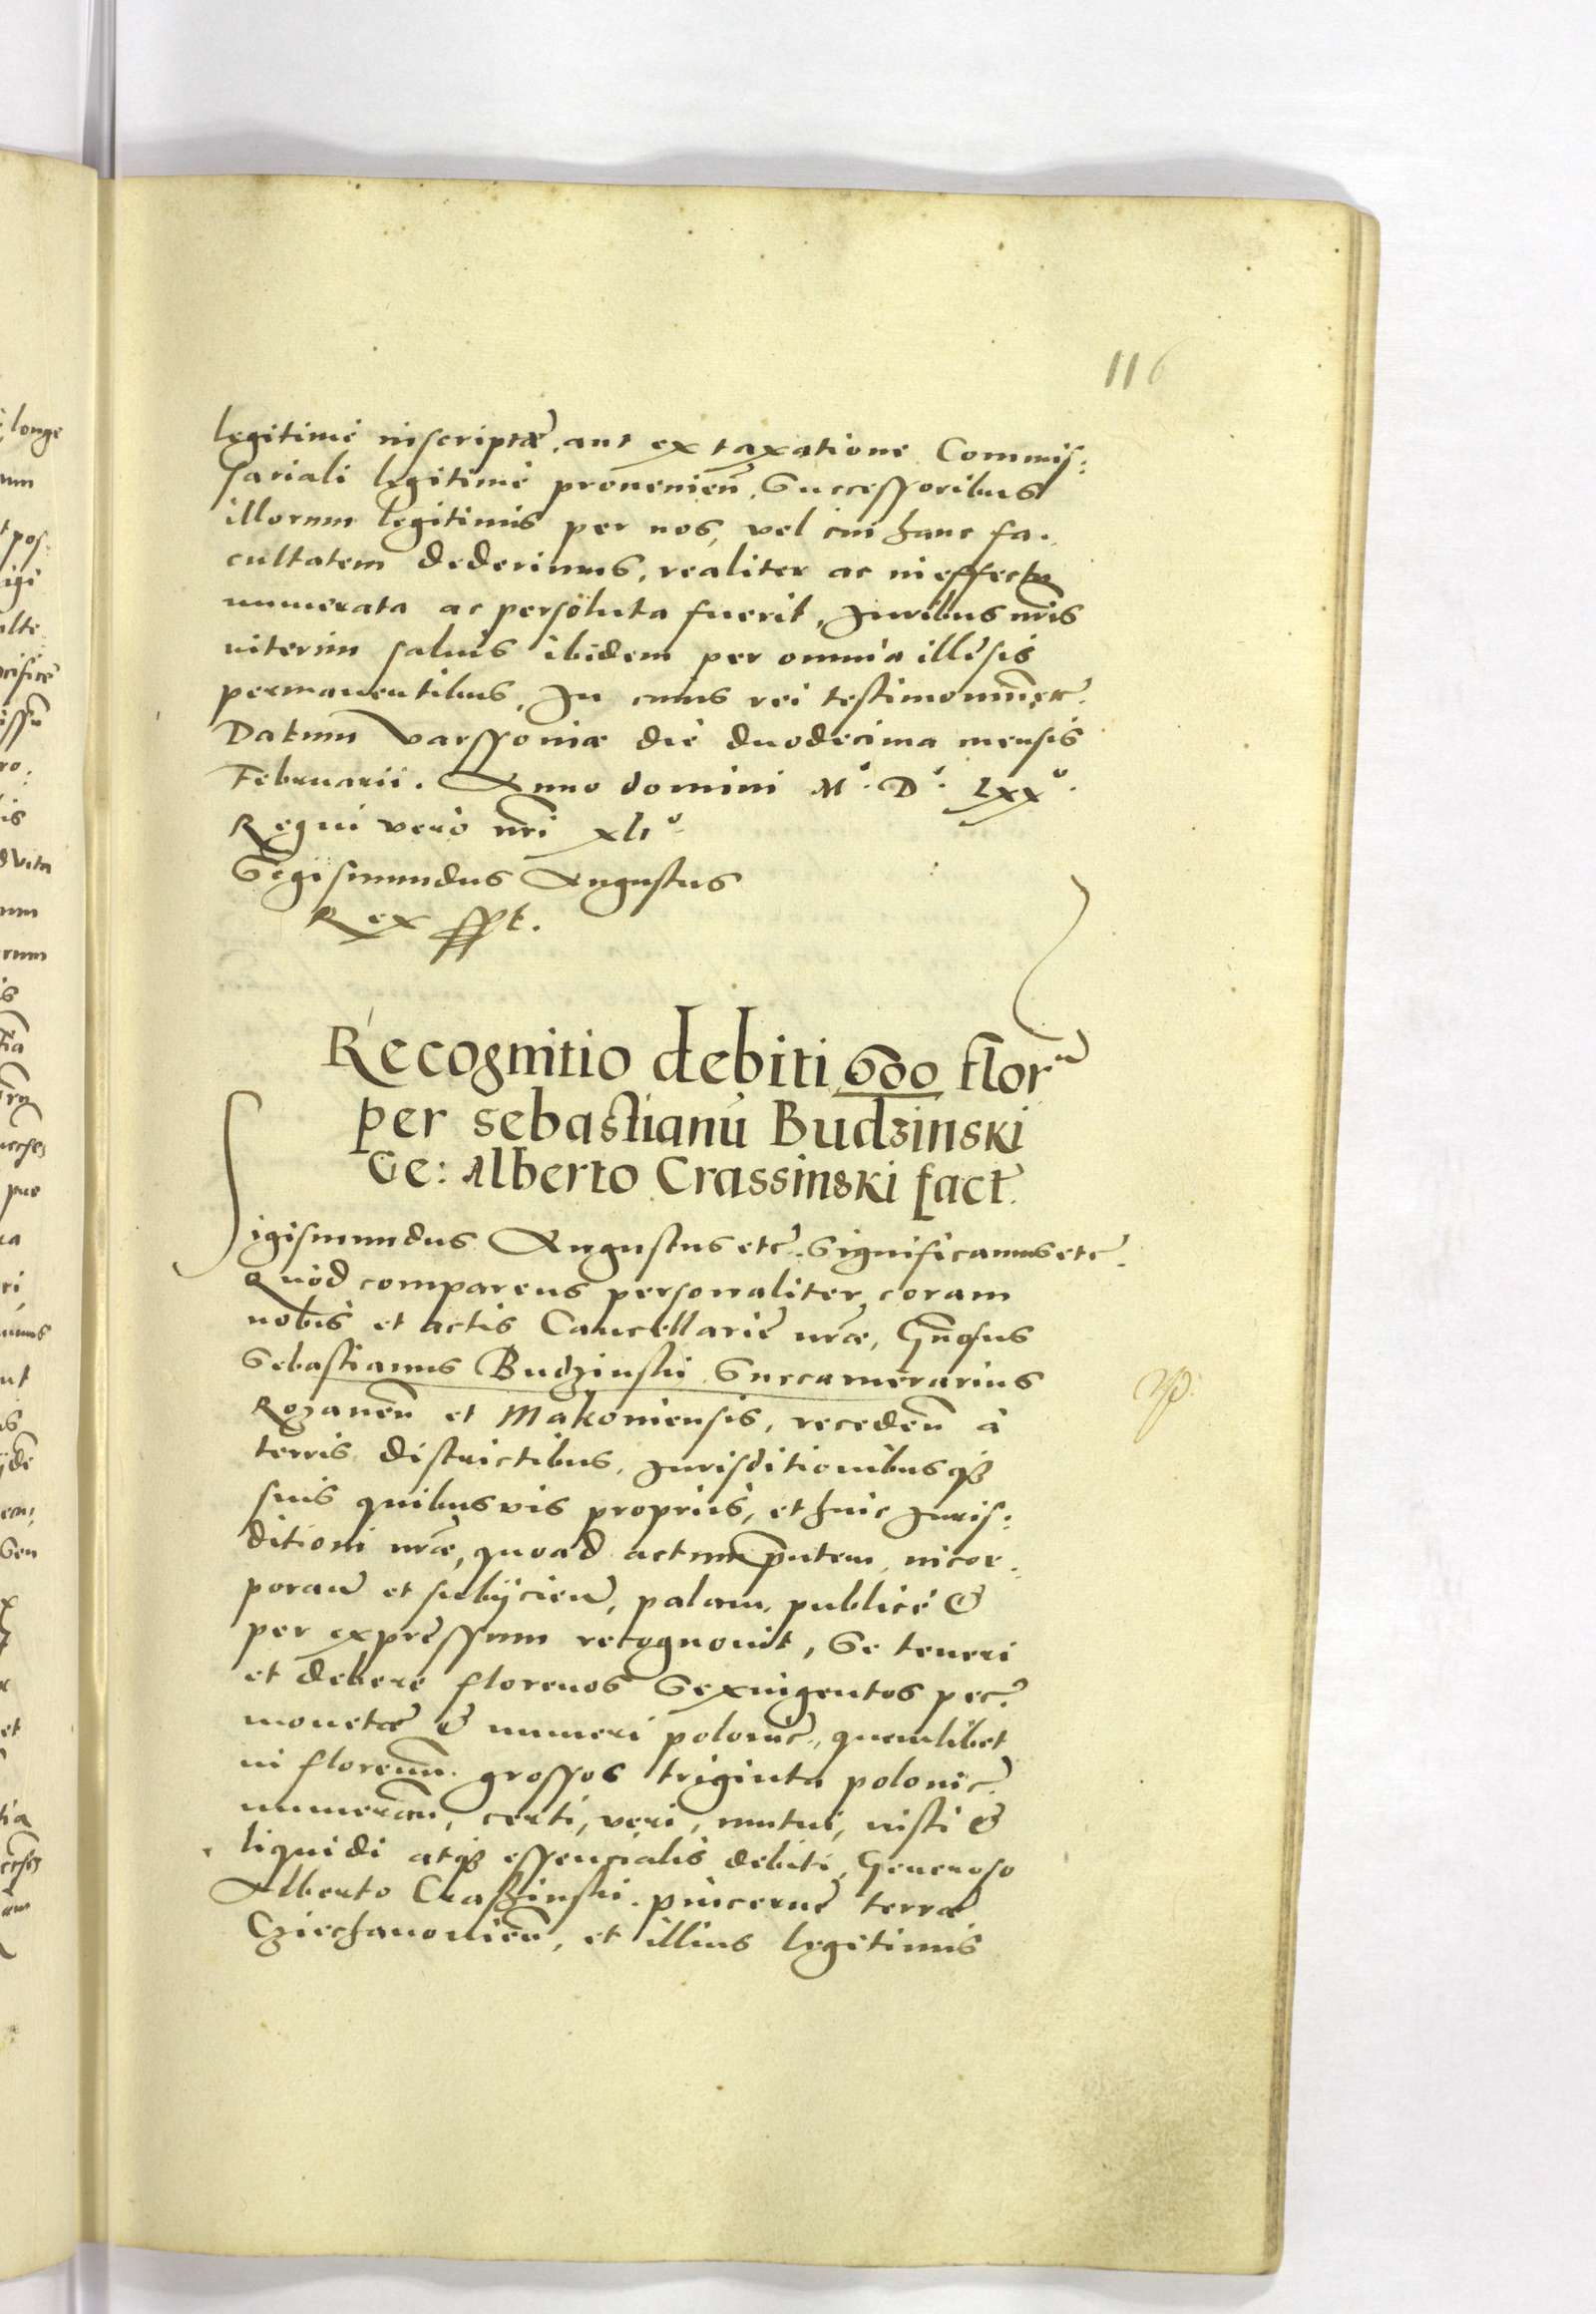 116
legitime inscriptæ, aut ex taxatione Commis:
sariali legitime prouenien̄, Successoribus
illorum legitimis per nos, vel cui hanc fa.
cultatem dederimus, realiter ac in effectu
numerata ac persoluta fuerit, Iuribus nr̄is
interim saluis ibidem per omnia illęsis
permanentibus, In cuius rei testimonium etc̄.
Datum Varssoniæ die duodecima mensis
Februarii. Anno domini Mº. Dº. Lxxº.
Regni vero nr̄i xliº
Sigismundus Augustus
Rex sspt.
Recognitio debiti 600 flor̄
per sebastianū Budzinski
Ge: Alberto Crassinski fact̄.
Sigismundus Augustus etc̄. Significamus etc̄.
Quod comparens personaliter coram
nobis et actis Cancellarię nr̄æ, Gn̄osus
Sebastianus Budzinski Succamerarius
Rozanen̄ et Makoniensis, receden̄ à
terris districtibus, Iurisditionibusqꝫ
suis quibusvis propriis, et huic Iuris:
ditioni nr̄æ, quoad actum pn̄tem, incor.
poran̄ et subijcien̄, palam, publicè &
per expressum recognouit, Se teneri
et debere florenos Sexingentos pec̄.
monetæ & numeri polonic̄, quemlibet
in florenum grossos triginta polonic̄.
numeran̄, certi, veri, mutui, iusti &
liquidi atqꝫ essencialis debiti, Generoso
Alberto Craszinski pincernę terræ
Cziechanouien̄, et illius legitimis